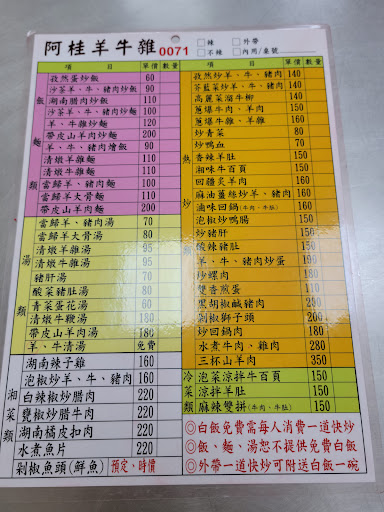 阿桂羊牛雜 0071
□辣 □外帶
□不辣 □內用/桌號
項目 單價 數量
飯麵類
孜然蛋炒飯 60
沙茶羊、牛、豬肉炒飯 90
湖南腊肉炒飯 110
沙茶羊、牛、豬肉炒麵 100
羊、牛雜炒麵 120
帶皮山羊肉炒麵 200
羊、牛、豬肉燴飯 100
清燉羊雜麵 110
清燉牛雜麵 110
當歸羊、豬肉麵 100
當歸羊大骨麵 100
帶皮山羊肉麵 200
湯類
當歸羊、豬肉湯 70
當歸羊大骨湯 80
清燉羊雜湯 95
清燉牛雜湯 95
豬肝湯 70
酸菜豬肚湯 80
青菜蛋花湯 60
清燉牛鞭湯 180
帶皮山羊肉湯 180
羊、牛清湯 免費
湘菜類
湖南辣子雞 160
泡椒炒羊、牛、豬肉 160
白辣椒炒腊肉 220
甕椒炒腊牛肉 220
湖南橘皮扣肉 220
水煮魚片 220
剁椒魚頭(鮮魚) 預定、時價
項目 單價 數量
熱炒類
孜然炒羊、牛、豬肉 140
芥藍菜炒羊、牛、豬肉 140
高麗菜溜牛柳 140
蔥爆牛肉、羊肉 150
蔥爆牛、羊雜 150
炒青菜 80
炒鴨血 70
香辣羊肚 150
湘味牛百頁 150
回疆炙羊肉 150
麻油薑絲炒羊、豬肉 160
滷味回鍋(牛肉、牛肚) 160
泡椒炒鴨腸 150
炒豬肝 150
酸辣豬肚 150
羊、牛、豬肉炒蛋 150
炒螺肉 150
雙香煎蛋 150
黑胡椒鹹豬肉 150
剁椒獅子頭 150
炒回鍋肉 180
水煮牛肉、雜 210
三杯山羊肉 350
冷菜類
泡菜涼拌牛百頁 150
涼拌羊肚 150
麻辣雙拼(牛肉、牛肚) 150
◎白飯免費需每人消費一道快炒
◎白飯、麵、湯恕不提供免費白飯
◎外帶一道快炒可附送白飯一碗